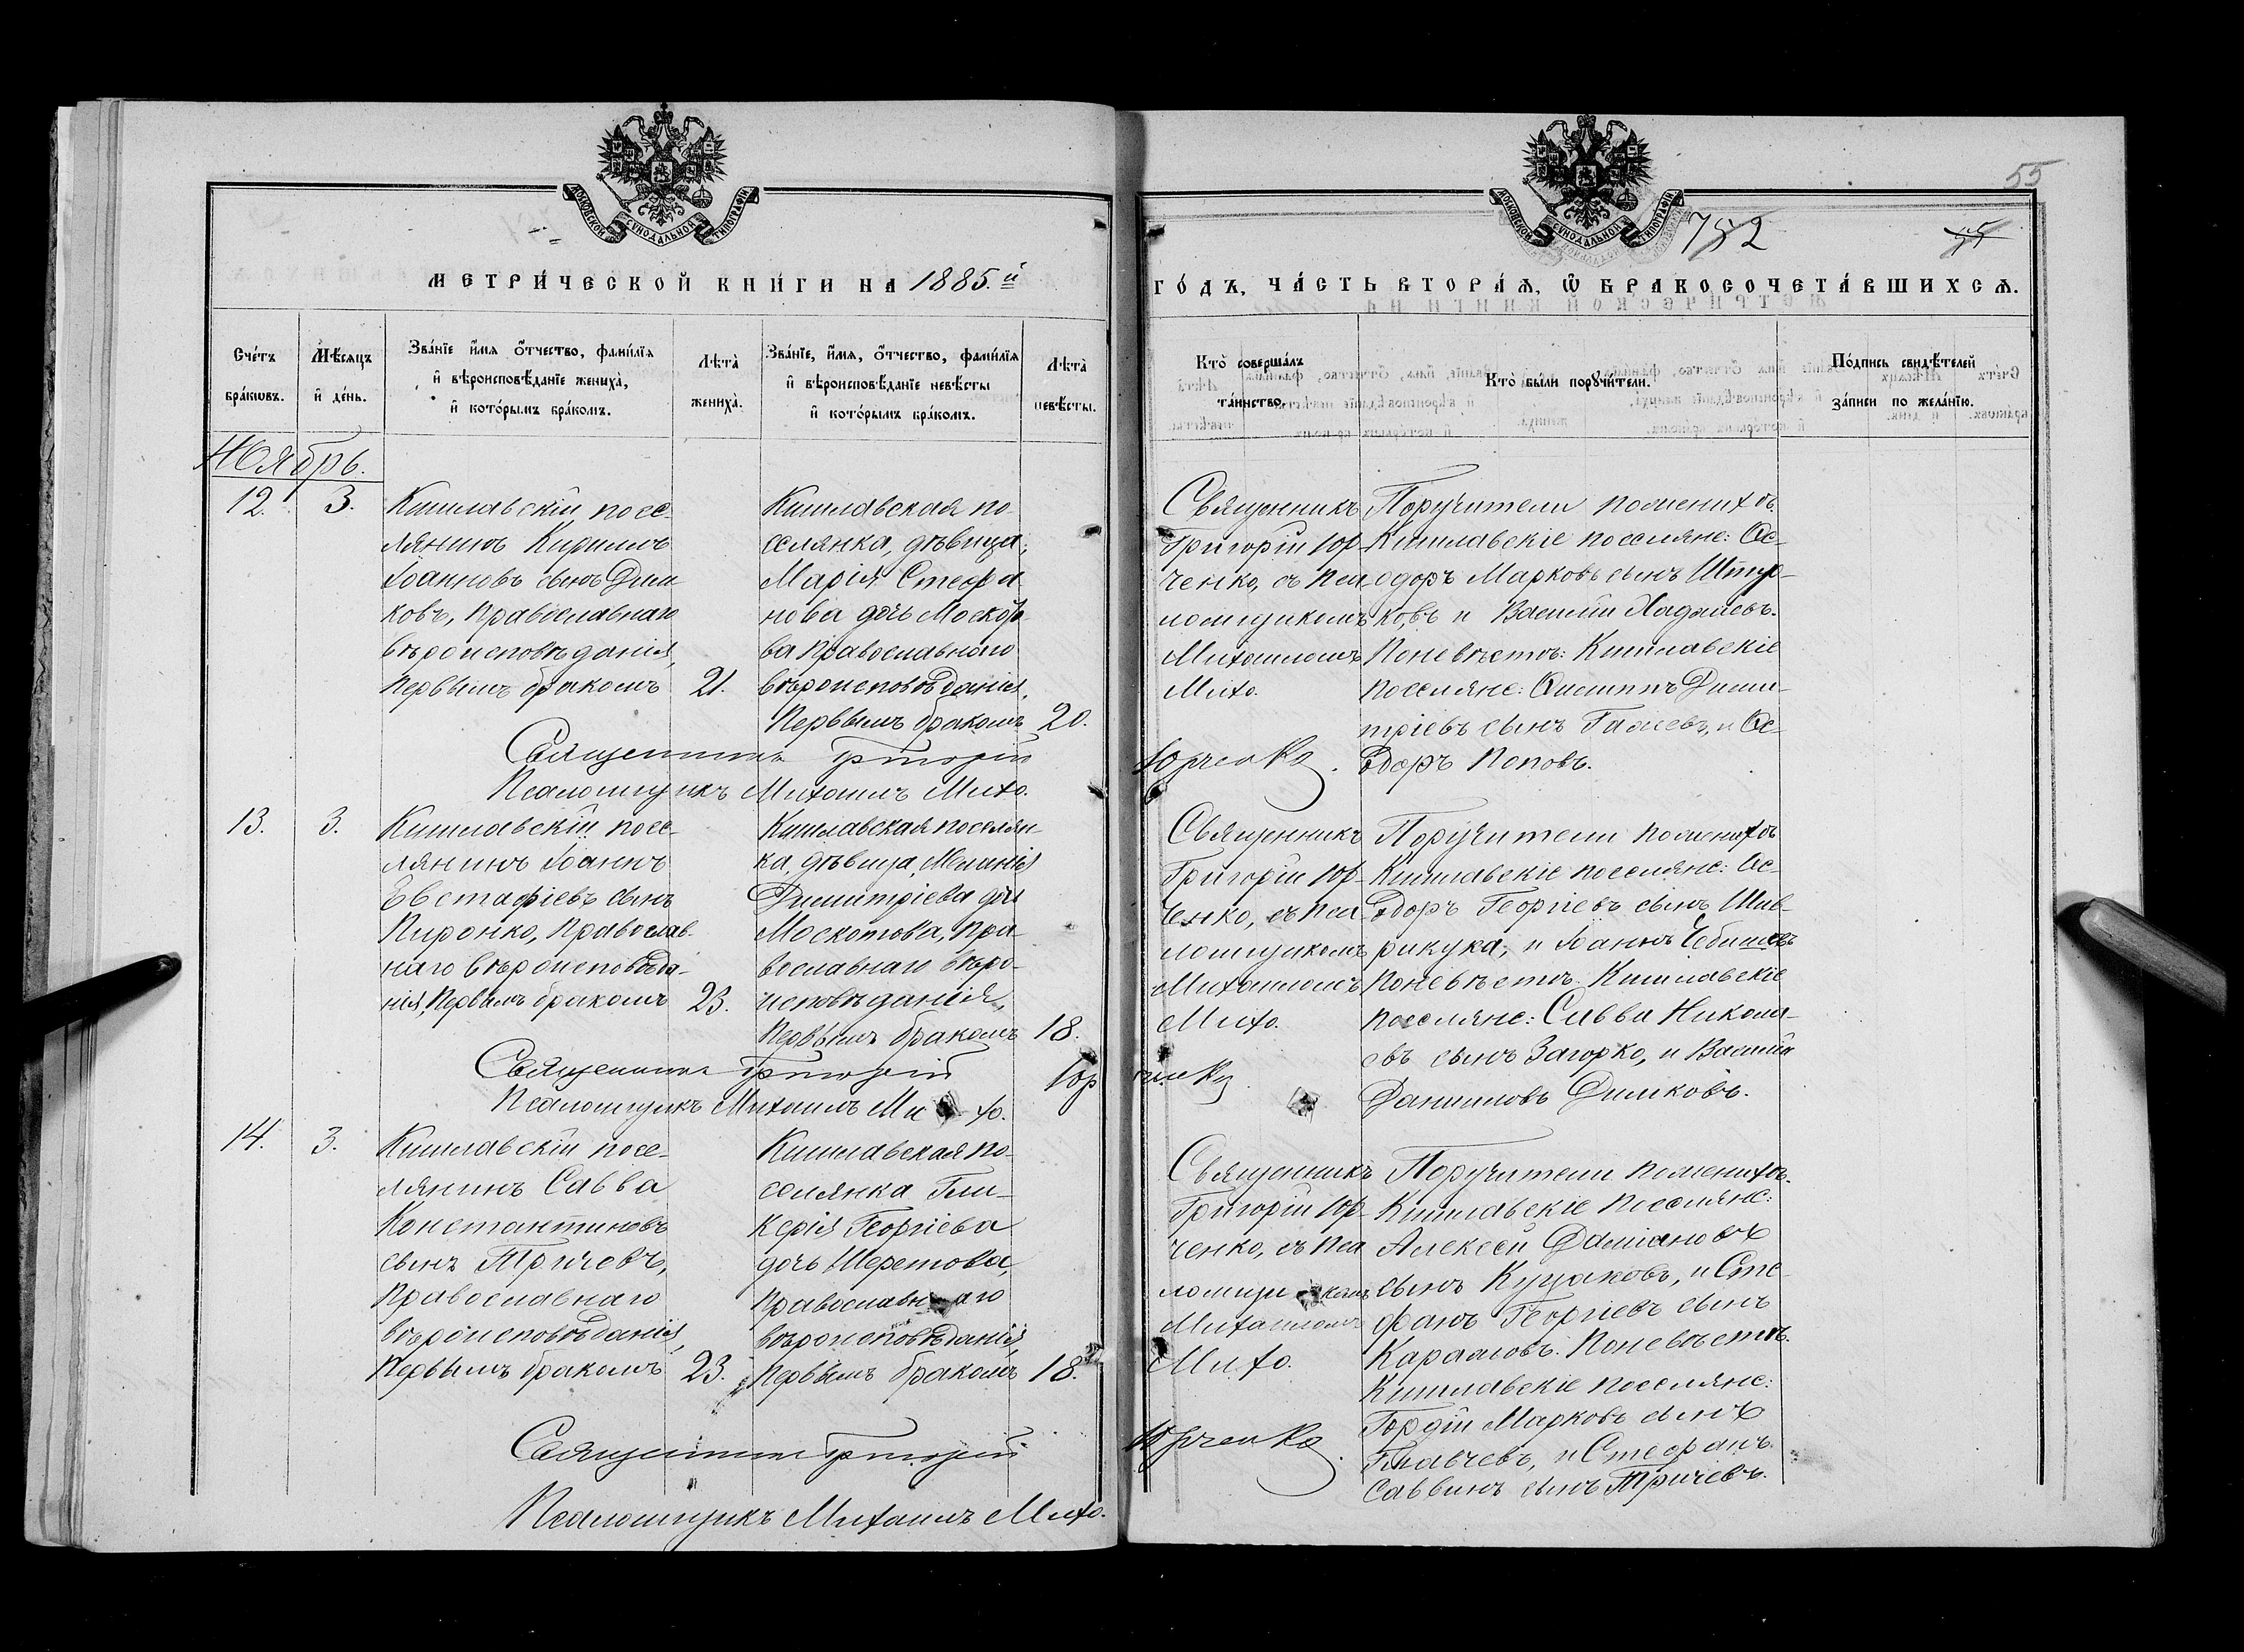 55
752
55
МОСКОВСКОЙ СѴНОДАЛЬНОЙ ТИПОГРАФІИ
МОСКОВСКОЙ СѴНОДАЛЬНОЙ ТИПОГРАФІИ
МЕТРИ́ЧЕСКОЙ КНИ́ГИ НА 1885.й
ГО́ДЪ, ЧА́СТЬ ВТОРА́Ѧ, Ѿ БРАКОСОЧЕТА́ВШИХСѦ.
Сче́тъ бра́кωвъ.
Мѣ́сяцъ и де́нь.
Зва́нїе и́мя о́тчество, фами́лїя
и вѣроисповѣ́данїе жениха̀,
и кото́рымъ бра́комъ.
Лѣта̀ жениха̀.
Зва́нїе, и́мя, о́тчество, фами́лїя
и вѣроисповѣ́данїе невѣ́сты
и кото́рымъ бра́комъ.
Лѣта̀ невѣ́сты.
Кто̀ соверша́лъ та́инство.
Кто̀ бы́ли поручи́тели.
По́дпись свидѣ́телей
за́писи по жела́нїю.
Ноябрь.
12. 3.
Кишлавскій посе-
лянинъ Кириллъ
Іоанновъ сынъ Дим
ковъ, православнаго
вѣроисповѣданія,
первымъ бракомъ 21.
Кишлавская по-
селянка, дѣвица,
Марія Стефа-
нова дочь Моско
ва православнаго
вѣроисповѣданія,
первымъ бракомъ 20.
Священникъ
Григорій Юр-
ченко, съ пса-
ломщикомъ
Михаиломъ
Михо.
Поручители по женихѣ
Кишлавскіе поселяне: Ѳе-
одоръ Марковъ сынъ Штур-
ковъ и Василій Хаджіевъ.
По невѣстѣ: Кишлавскіе
поселяне: Филиппъ Дими-
тріевъ сынъ Галіевъ, и Ѳе-
одоръ Поповъ.
Священникъ Григорій Юрченко.
Псаломщикъ Михаилъ Михо.
13. 3.
Кишлавскій посе-
лянинъ Іоаннъ
Евстафіевъ сынъ
Пиронко, православ-
наго вѣроисповѣда-
нія, первымъ бракомъ 23.
Кишлавская поселян-
ка, дѣвица, Меланія
Димитріева дочь
Москотова, пра-
вославнаго вѣро-
исповѣданія,
первымъ бракомъ 18.
Священникъ
Григорій Юр-
ченко, съ пса-
ломщикомъ
Михаиломъ
Михо.
Поручители по женихѣ
Кишлавскіе поселяне: Ѳе-
одоръ Георгіевъ сынъ Шив-
рикука, и Іоаннъ Чебишевъ
по невѣстѣ. Кишлавскіе
поселяне: Савва Никола-
евъ сынъ Загорко, и Василій
Даниловъ Димковъ.
Священникъ Григорій Юрченко
Псаломщикъ Михаилъ Михо.
14. 3.
Кишлавскій посе-
лянинъ Савва
Константиновъ
сынъ Тричевъ,
православнаго
вѣроисповѣданія,
первымъ бракомъ 23.
Кишлавская по-
селянка Гли-
керія Георгіева
дочь Шеретова,
православнаго
вѣроисповѣданія,
первымъ бракомъ 18.
Священникъ
Григорій Юр-
ченко, съ пса
ломщикомъ
Михаиломъ
Михо.
Поручители по женихѣ.
Кишлавскіе поселяне:
Алексѣй Даміановъ
сынъ Куцаковъ, и Сте-
фанъ Георгіевъ сынъ
Караловъ. По невѣстѣ.
Кишлавскіе поселяне:
Гордій Марковъ сынъ
Главчевъ, и Стефанъ
Саввинъ сынъ Тричевъ.
Священникъ Григорій Юрченко.
Псаломщикъ Михаилъ Михо.